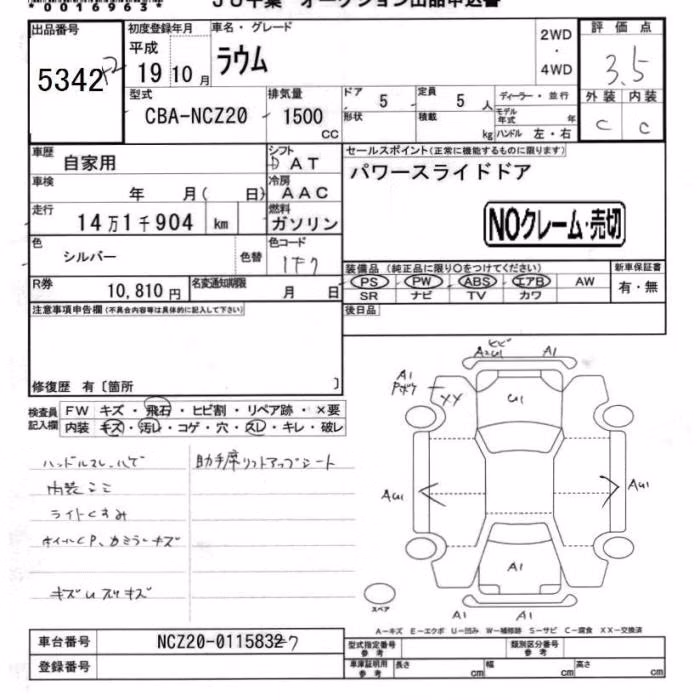 *0016963*
JU千葉 オークション出品申込書
出品番号
5342
初度登録年月
平成
19 10 月
車名・グレード
ラウム
2WD
・
4WD
評価点
3.5
外装 内装
C C
型式
CBA-NCZ20
排気量
1500
CC
ドア 5
形状
定員 5 人
積載 kg
ディーラー・並行
モデル年式 年
ハンドル 左・右
車歴
自家用
シフト
D AT
セールスポイント(正常に機能するものに限ります)
パワースライドドア
車検
年 月( 日)
冷房
AAC
走行
14万1千904 km
燃料
ガソリン
NOクレーム・売切
色
シルバー
色替
色コード
1F7
装備品 (純正品に限り○をつけてください)
PS PW ABS エアB AW
SR ナビ TV カワ
新車保証書
有・無
R券
10,810円
名変通知期限
月 日
後日品
注意事項申告欄(不具合内容等は具体的に記入して下さい)
修復歴 有〔箇所 〕
検査員
記入欄
FW キズ・飛石・ヒビ割・リペア跡・×要
内装 キズ・汚レ・コゲ・穴・スレ・キレ・破レ
ハンドルスレ、ハゲ
助手席リフトアップシート
ライトくすみ
ヒビ
A2U1 A1
A1
XX
U1
AU1
AU1
A1
A1 A1
スペア
A―キズ E―エクボ U―凹み W―補修跡 S―サビ C―腐食 XX―交換済
車台番号
NCZ20-0115832
登録番号
型式指定番号
参考
類別区分番号
参考
車庫証明用
参考
長さ cm
幅 cm
高さ cm